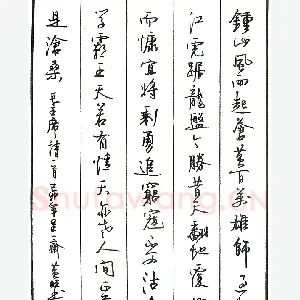 鍾山風雨起蒼黃百萬雄師過
江虎踞龍盤今勝昔天翻地覆慨
而慷宜將剩勇追窮寇不可沽名
學霸王天若有情天亦老人間正道
是滄桑 毛主席詩一首
Shufawang.CN